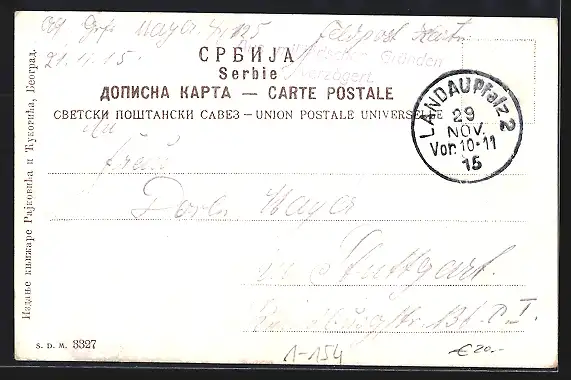 Feldpost
21.11.15.
aus militärischen Gründen
verzögert.
СРБИЈА
Serbie
ДОПИСНА КАРТА — CARTE POSTALE
СВЕТСКИ ПОШТАНСКИ САВЕЗ – UNION POSTALE UNIVERSELLE
LANDAU Pfalz 2
29
NOV.
Vor. 10-11
15
An
Mayer
in Stuttgart.
Издање књижаре Рајковића и Ћуковића, Београд.
S. D. M. 3327
1-154
€20.-